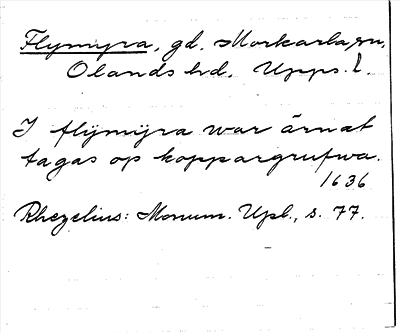 Flymyra, gd. Morkarla sn,
Olands hd. Upps. l.
I flÿmÿra war ärnat
tagas op koppargrufwa.
1636
Rhezelius: Monum. Upl., s. 77.